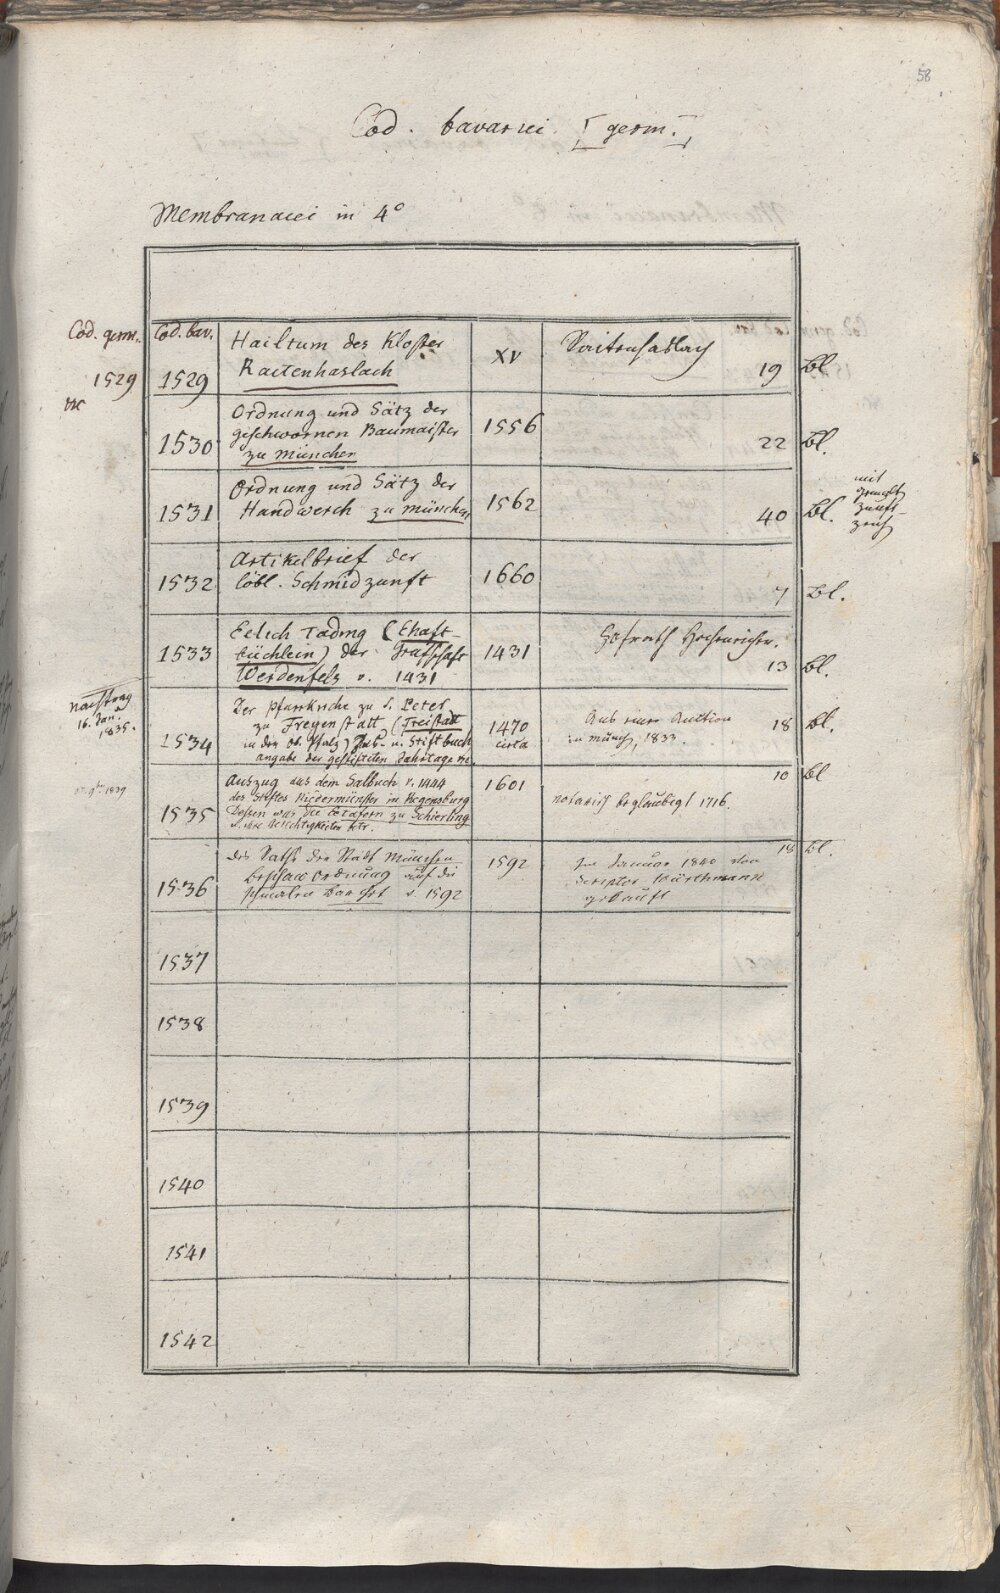 58
Cod. bavarici [germ.]
Membranacei in 4°
Cod. germ. Cod. bav.
1529 1529 Hailtum des Kloster
Raitenhaslach XV Raitenhaslach 19 Bl
1530 Ordnung und Sätz der
geschwornen Baumaister
zu München 1556 22 Bl.
1531 Ordnung und Sätz der
Handwerch zu München 1562 40 Bl. mit
1532 Artikelbrief der
löbl. Schmidzunft 1660 7 Bl.
1533 Eelich Tading (Ehaft-
büchlein) der Grafschaft
Werdenfels v. 1431 1431 Hofrath 13 Bl.
Nachtrag
16. Jan.
1835.
1534 Der Pfarrkirche zu S. Peter
zu Freyenstatt (Freistadt
in der ob. Pfalz) Sal- u. Stiftbuch
angabe der gestifteten Jahrtage 1470
circa Aus einer Auction
in Münch. 1833. 18 Bl.
1839
1535 Auszug aus dem Salbuch v. 1444
des Stiftes Niedermünster in Regensburg
Dessen was die Tafern zu Schierling
betr. 1601 notarisch beglaubigt 1716. 10 Bl
1536 des Raths der Stadt München
Beschau Ordnung auf die
schmalen Barchet v. 1592 1592 Im Januar 1840 von
Scriptor Würthmann
gekauft 18 Bl.
1537
1538
1539
1540
1541
1542